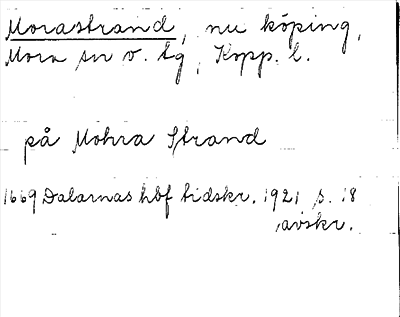 Morastrand, nu köping,
Mora sn o. tg, Kopp. l.
på Mohra Strand
1669 Dalarnas hbf tidskr. 1921 s. 18
avskr.